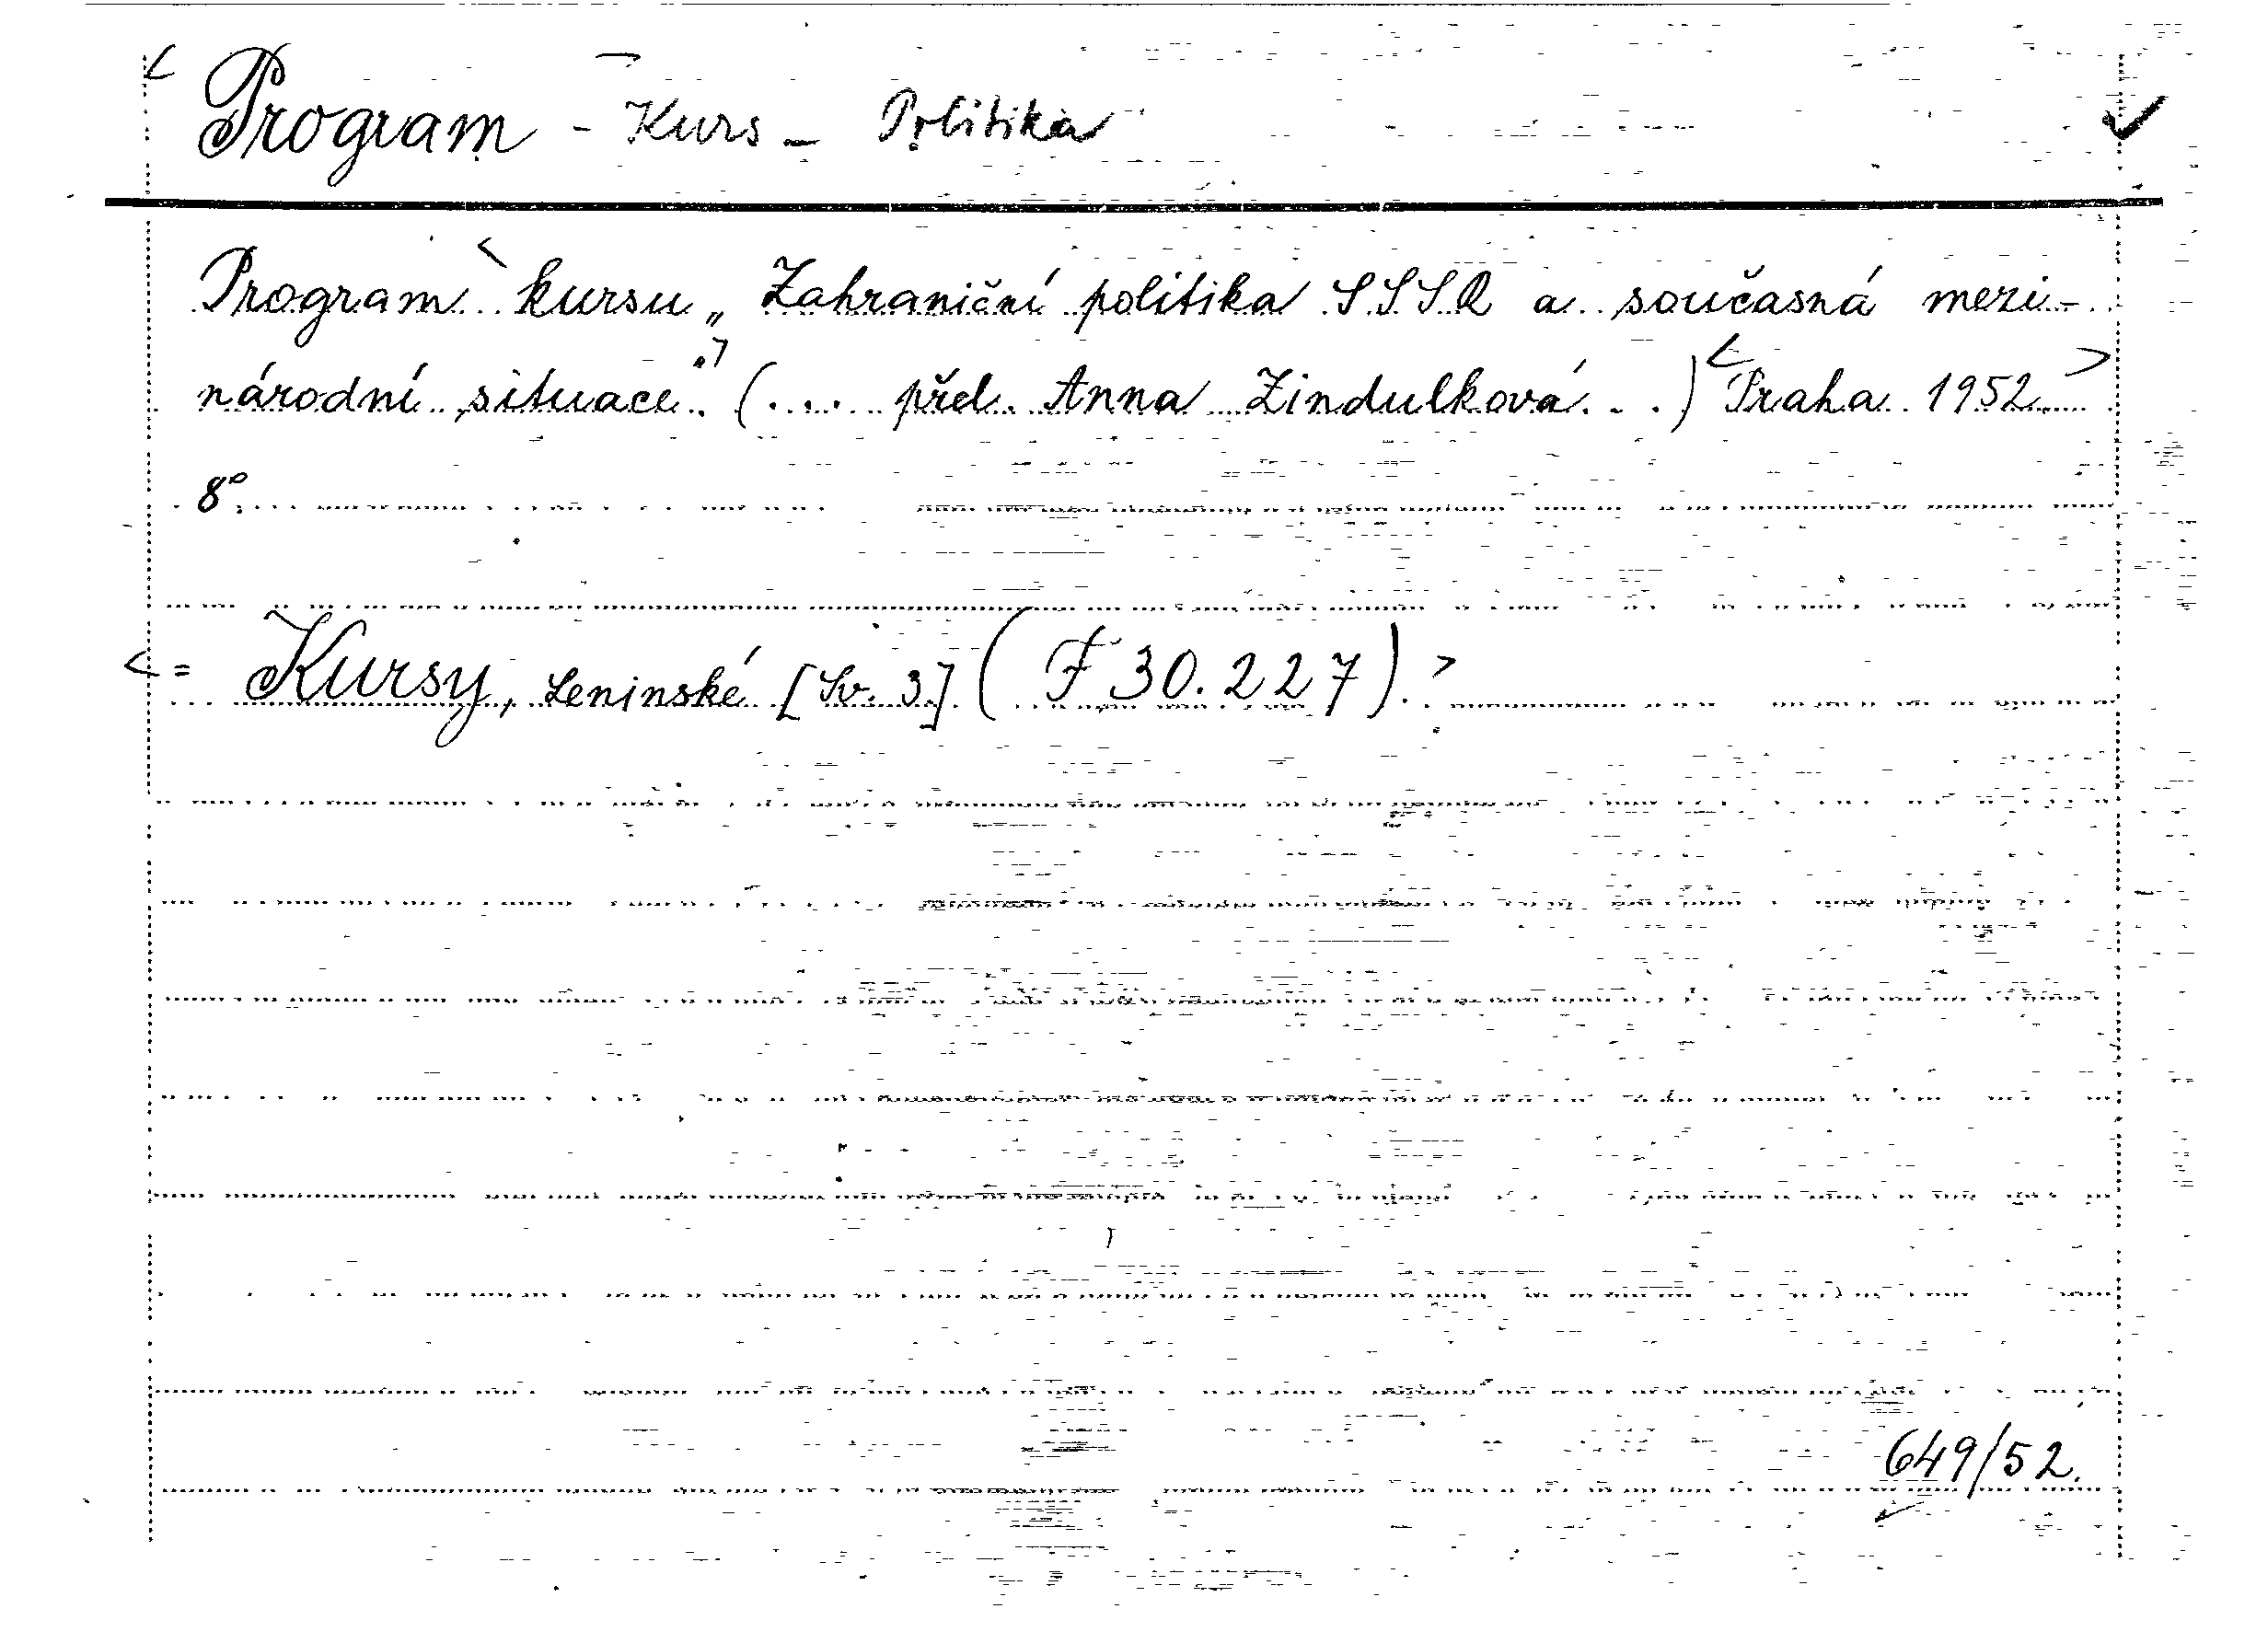 Program - Kurs - Politika
Program kursu „Zahraniční politika SSSR a současná mezi-
národní situace". (.... přel. Anna Zindulková...) Praha 1952
8°.
= Kursy, Leninské [Sv. 3] (F 30.227).
649/52.